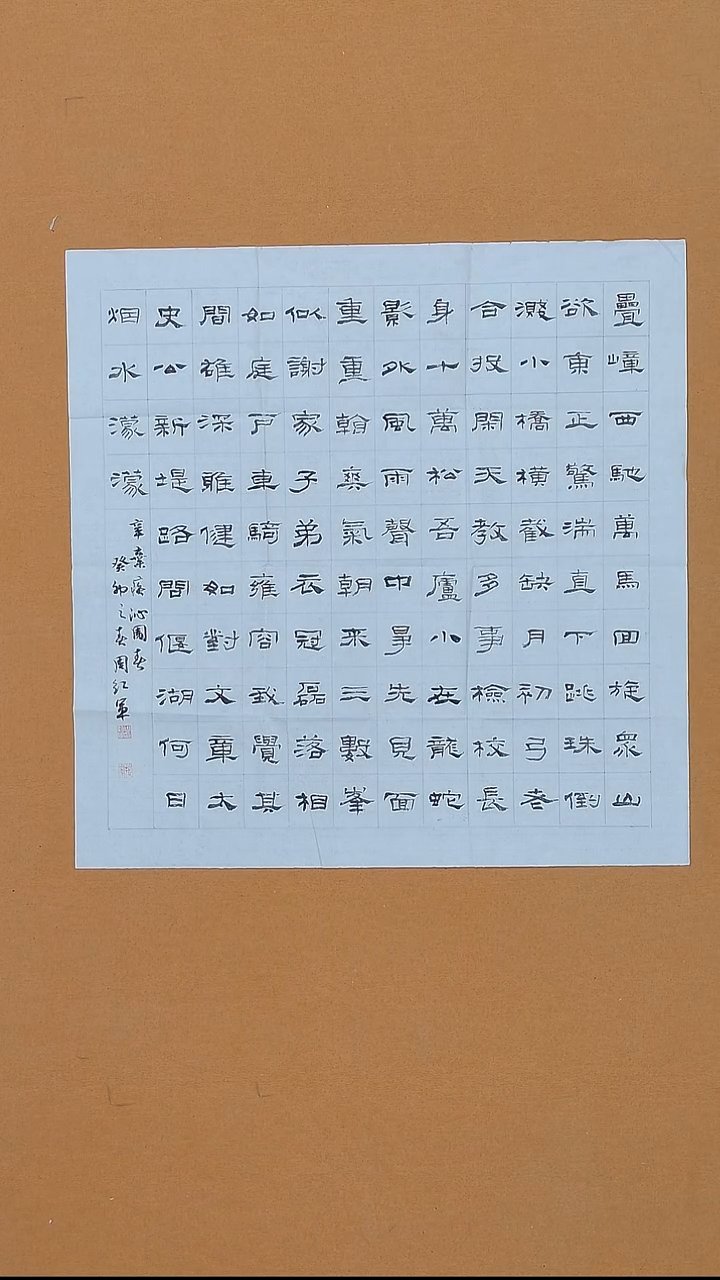 疊嶂西馳萬馬回旋眾山
欲東正驚湍直下跳珠倒
濺小橋橫截缺月初弓老
合投閑天教多事檢校長
身十萬松吾廬小在龍蛇
影外風雨聲中爭先見面
重重看爽氣朝來三數峯
似謝家子弟衣冠磊落相
如庭戶車騎雍容我覺其
間雄深雅健如對文章太
史公新堤路問偃湖何日
烟水濛濛
辛棄疾沁園春
癸卯之春周红軍